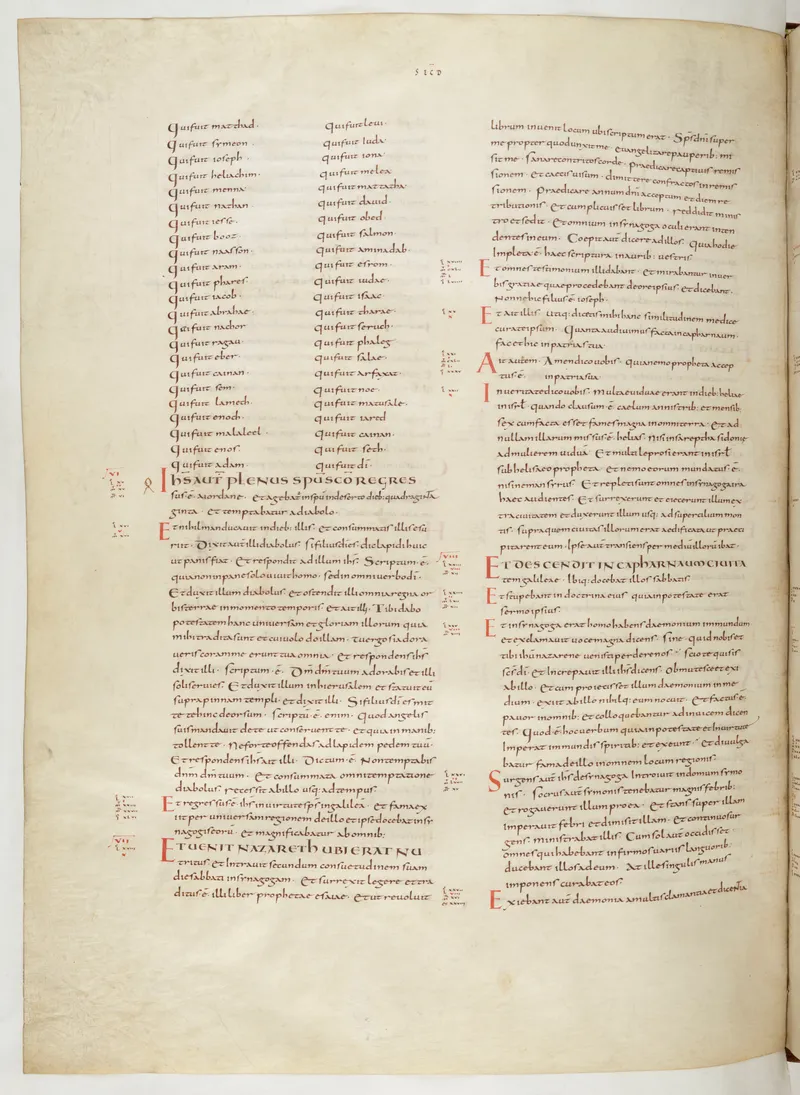 qui fuit matthad · qui fuit levi ·
qui fuit symeon · qui fuit iuda ·
qui fuit ioseph · qui fuit iona ·
qui fuit heliachim · qui fuit melea
qui fuit menna · qui fuit matzatha ·
qui fuit nathan qui fuit david ·
qui fuit iesse · qui fuit obed ·
qui fuit booz · qui fuit salmon ·
qui fuit naasson · qui fuit aminadab ·
qui fuit aram · qui fuit esrom ·
qui fuit phares qui fuit iudae ·
qui fuit iacob · qui fuit isaac ·
qui fuit abrahae · qui fuit tharae ·
qui fuit nachor qui fuit seruch ·
qui fuit ragau qui fuit phaleg ·
qui fuit eber · qui fuit salae ·
qui fuit cainan qui fuit arfaxat ·
qui fuit sem · qui fuit noe ·
qui fuit lamech · qui fuit matusale ·
qui fuit enoch · qui fuit iared
qui fuit malaleel · qui fuit cainan ·
qui fuit enos · qui fuit seth ·
qui fuit adam · qui fuit dī ·
Ihs aut̄ plenus spu scō regres
sus ē aiordane · et agebat in spu in deserto dieb; quadragin
ginta · et temptabatur adiabolo ·
Et nihil manducavit indieb; illis · et consummatis illis esu
riit · Dixit aut illi diabolus · si filius di es dic lapidi huic
ut panis fiat · et respondit ad illum ihs · Scriptum ē ·
quia non in pane solo vivit homo · sed in omni verbo di ·
Et duxit illum diabolus · et ostendit illi omnia regna or
bis terrae in momento temporis et ait illi · Tibi dabo
potestatem hanc universam et gloriam illorum quia
mihi tradita sunt et cui volo do illam · tu ergo si adora
veris coram me erunt tua omnia · et respondens ihs
dixit illi · scriptum ē · Dnm dm tuum adorabis et illi
soli servies · et duxit illum in hierusalem et statuit eū
supra pinnam templi · et dixit illi · Si filius di es mit
te te hinc deorsum · scriptū ē enim · quod angelis
suis mandavit de te ut conservent te · et quia in manib;
tollent te · ne forte offendas ad lapidem pedem tuū ·
Et respondens ihs ait illi · Dictum ē · non temptabis
dnm dm tuum · et consummata omni temptatione
diabolus recessit ab illo usq; ad tempus ·
Et regressus ē ihs in virtute sps in galilea · et fama ex
iit per universam regionem de illo et ipse docebat in sy
nagogis eorū · et magnificabatur ab omnib;
Et venit nazareth ubi erat nu
tritus · et intravit secundum consuetudinem suam
die sabbati in synagogam · et surrexit legere et tra
ditus ē illi liber prophetae esaiae · et ut revolvit
librum invenit locum ubi scriptum erat · Sps dni super
me propter quod unxit me · evangelizare pauperib; mi
sit me · sanare contritos corde · praedicare captivis remis
sionem · et caecis visum · dimittere confractos in remis
sionem · praedicare annum dni acceptum et diem re
tributionis · et cum plicuisset librum · reddidit minis
tro et sedit · et omnium in synagoga oculi erant inten
dentes in eum · Coepit aut dicere ad illos · quia hodie
impleta ē haec scriptura in aurib; vestris ·
Et omnes testimonium illi dabant · et mirabantur in ver
bis gratiae quae procedebant de ore ipsius et dicebant ·
nonne hic filius ē ioseph ·
Et ait illis · utiq; dicetis mihi hanc similitudinem medice
cura te ipsum · quanta audivimus facta in capharnaum ·
fac et hic in patria tua ·
Ait autem · amen dico vobis · quia nemo propheta accep
tus ē · in patria sua
In veritate dico vobis · multae viduae erant in dieb; heliae
in isrl · quando clausum ē caelum annis trib; et mensib;
sex cum facta esset fames magna in omni terra · et ad
nullam illarum missus ē helias · nisi in sareptha sidoniae
ad mulierem viduā · et multi leprosi erant in isrl
sub helisaeo propheta · et nemo eorum mundatus ē ·
nisi neman syrus · et repleti sunt omnes in synagoga ira
haec audientes · et surrexerunt et eiecerunt illum ex
tra civitatem et duxerunt illum usq; ad supercilium mon
tis · supra quem civitas illorum erat aedificata ut praeci
pitarent eum · ipse aut transiens per medium illorū ibat ·
Et descendit in capharnaum civita
tem galileae · ibiq; docebat illos sabbatis ·
Et stupebant in doctrina eius quia in potestate erat
sermo ipsius ·
Et in synagoga erat homo habens daemonium immundum
et exclamavit voce magna dicens · sine · quid nobis et
tibi ihu nazarene venisti perdere nos · scio te qui sis
scs di · et increpavit illi ihs dicens · obmutesce et exi
ab illo · et cum proiecisset illum daemonium in me
dium · exiit ab illo nihilq; eum nocuit · et factus ē
pavor in omnib; et colloquebantur ad invicem dicen
tes · quod ē hoc verbum quia in potestate et virtute
imperat immundis spiritib; et exeunt · et divulga
batur fama de illo in omnem locum regionis ·
Surgens aut ihs de synagoga introivit in domum symo
nis · socrus aut symonis tenebatur magnis febrib;
et rogaverunt illum pro ea · et stans super illam
imperavit febri et dimisit illam · et continuo sur
gens ministrabat illis · Cum sol aut occidisset
omnes qui habebant infirmos variis languorib;
ducebant illos ad eum · at ille singulis manus
imponens curabat eos ·
Exiebant aut daemonia a multis clamantia et dicentia